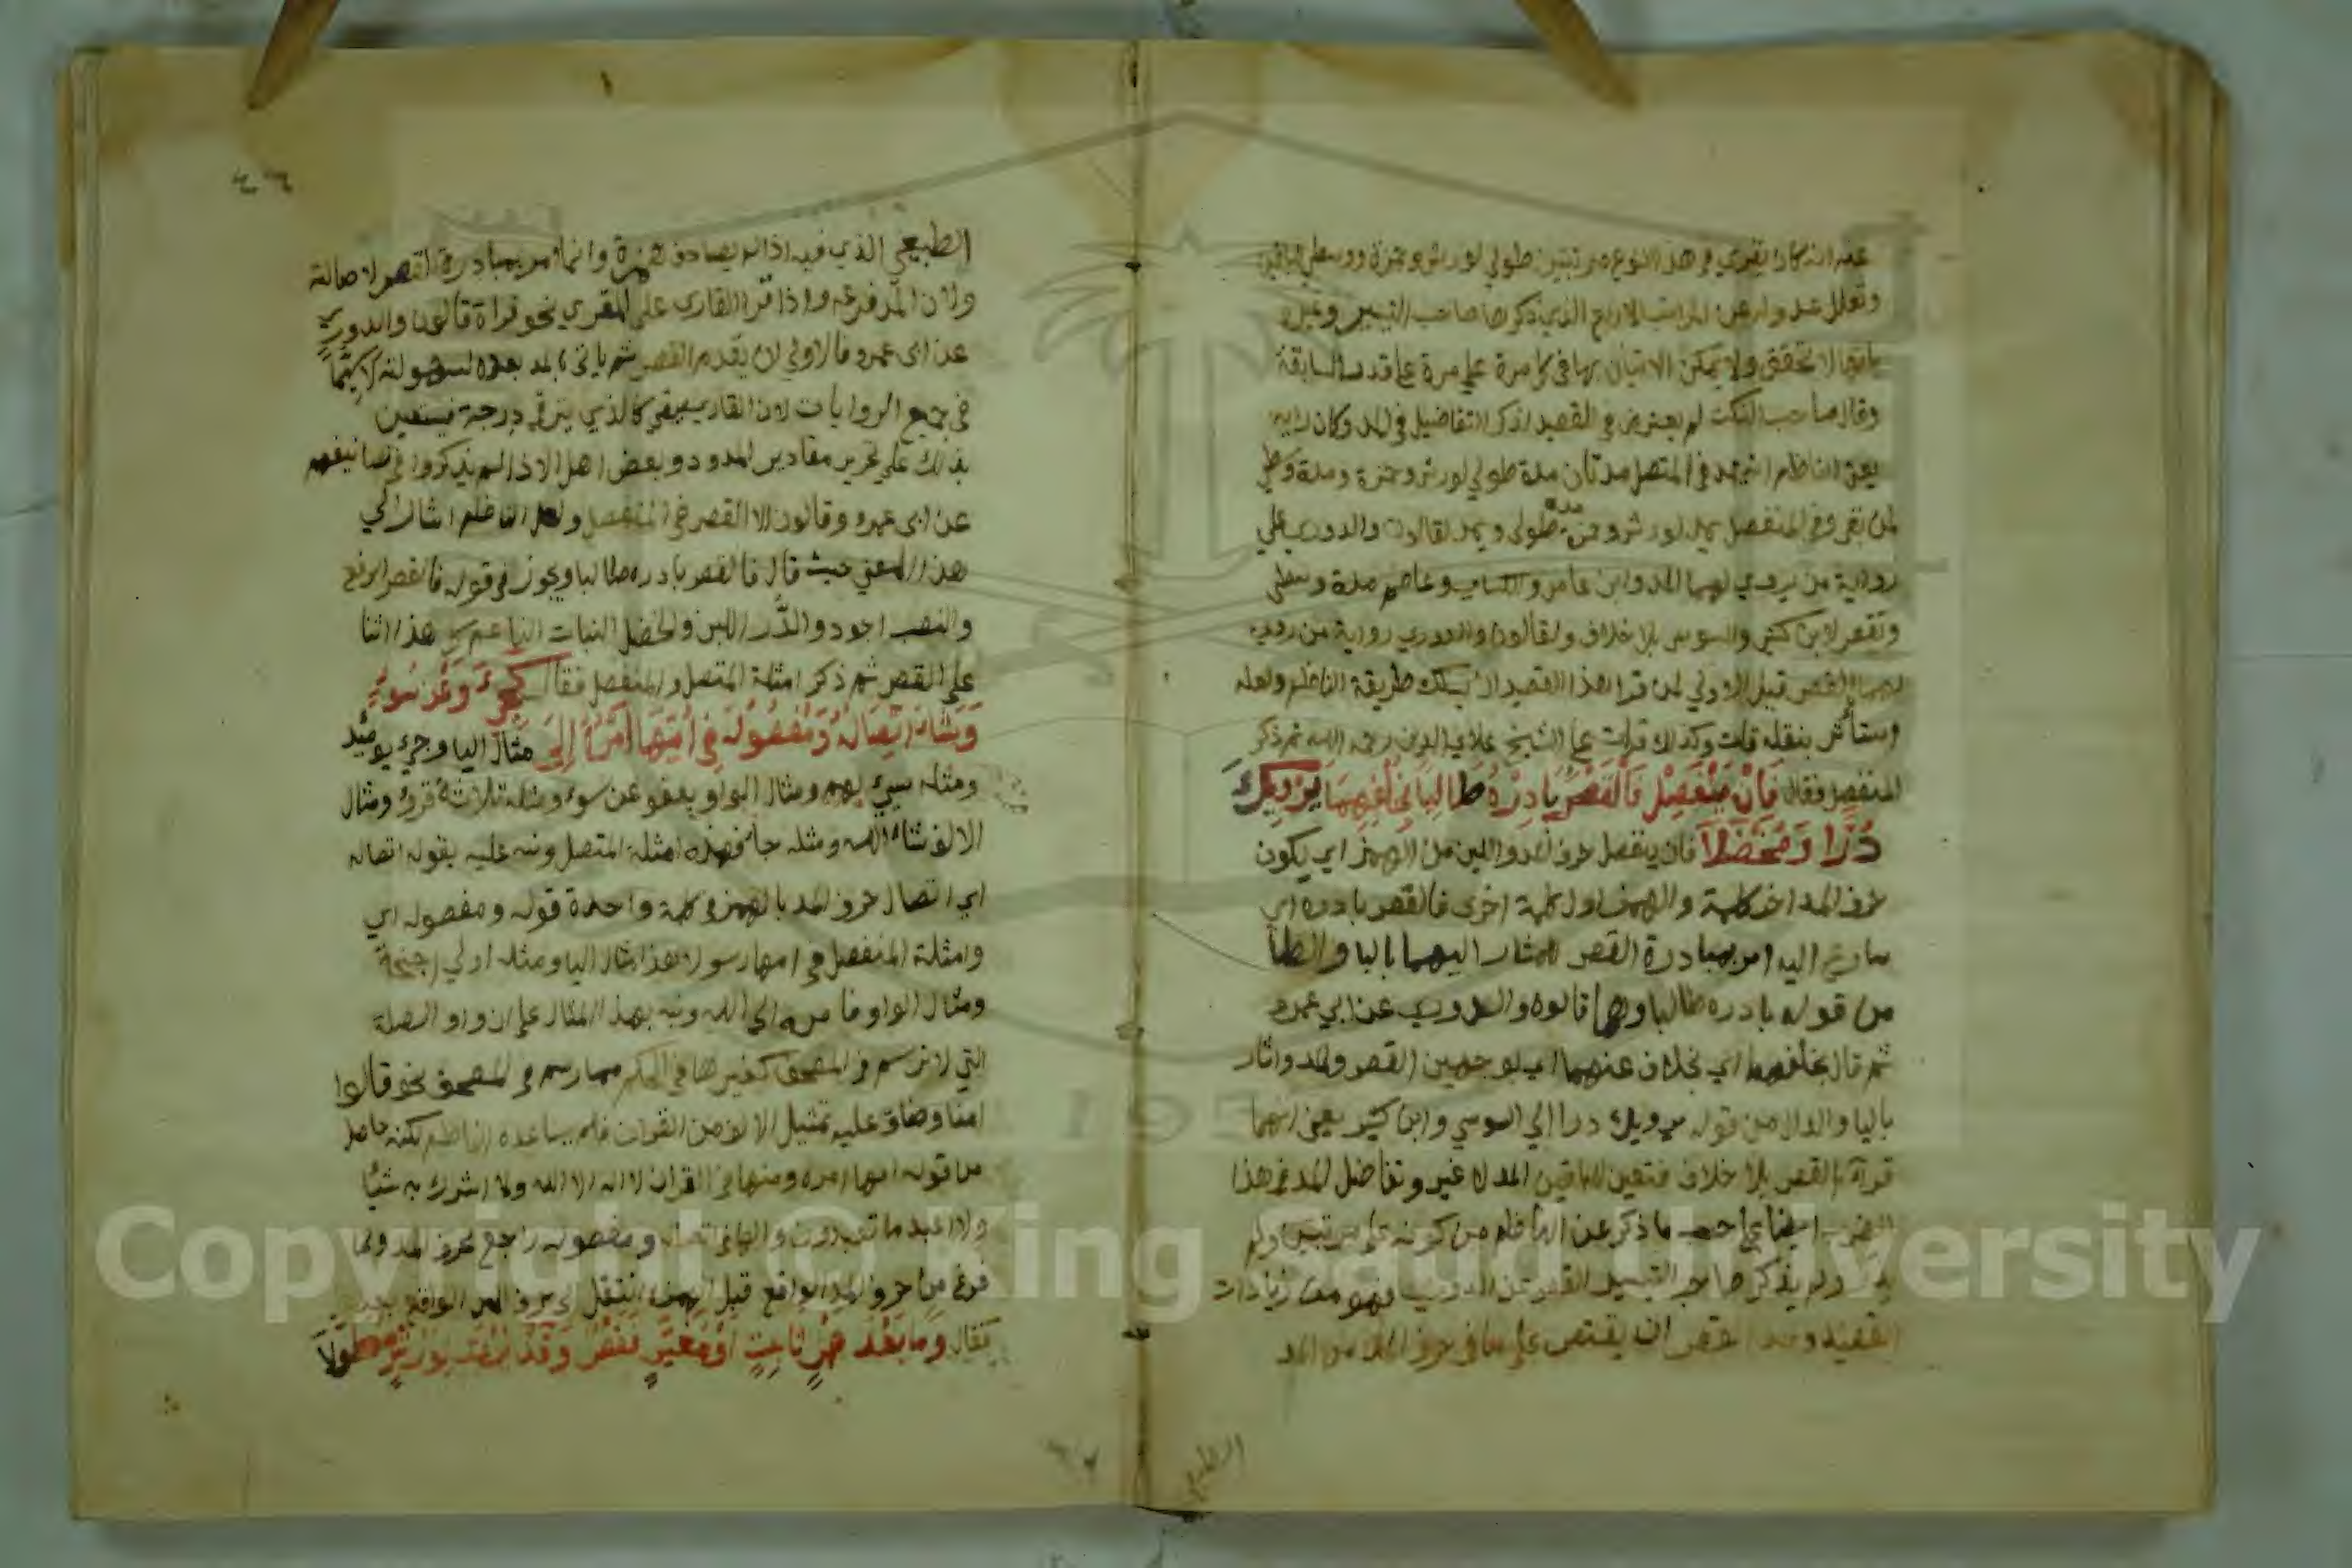 عنه انه كان يقرئ في هذا النوع مرتبتين طولى لورش وحمزة ووسطى للباقين
وتعلل عدوله عن المراتب الاربع الذي ذكرها صاحب التيسير وغيره
بانها لا تتحقق ولا يمكن الاتيان بها في كل مرة على قدر السابقة
وقال صاحب النكت لم يعترض في القصيد لذكر التفاضيل في المد وكان رايه
يعني الناظم انه يمد في المتصل مدتان مدة طولى لورش وحمزة ومدة وسطى
لمن بقي وفي المنفصل يمد لورش وحمزة مدة طولى ويمد لقالون والدوري على
رواية من يروي لهما المد وابن عامر والكسائي وعاصم مدة وسطى
ويقصر لابن كثير والسوسي بلا خلاف ولقالون والدوري رواية من روى
لهما القصر قبل الاولى لمن قرا هذا القصيد ان يسلك طريقة الناظم ولعله
استأثر بنقله قلت وكذلك قرات على الشيخ علاي الدين رحمه الله ثم ذكر
المنفصل فقال فَإِنْ يَنْفَصِلْ فَالْقَصْرُ بَادِرْهُ طَالِبًا بِخُلْفِهِمَا يُرْوِيكَ
دَرًّا وَمُخْضَلَا فان ينفصل حرف المد واللين من الهمز اي يكون
حرف المد اخر كلمة والهمز اول كلمة اخرى فالقصر بادره اي
سارع اليه امر بمبادرة القصر للمشار اليهما بالبا والطا
من قوله بادره طالبا وهما قالون والدوري عن ابي عمرو
ثم قال بخلفهما اي بخلاف عنهما اي بوجهين القصر والمد واشار
باليا والدال من قوله يرويك درا الى السوسي وابن كثير يعني انهما
قرآ بالقصر بلا خلاف فتعين للباقين المد لا غير وتفاضل المد في هذا
الضرب ايضا على حسب ما ذكر عن الناظم من كونه على مرتبتين ولم
ولم يذكر صاحب التيسير القصر عن الدوري فهو من زيادات
القصيد وحد القصر ان يقتصر على ما في حرف المد من المد
الطبيعي
الطبيعي الذي فيه اذا لم يصادف همزة وانما امر بمبادرة القصر لاصالته
ولان المد فرعه واذا قرا القاري على المقري نحو قراة قالون والدوري
عن ابي عمرو فالاولى ان يقدم القصر ثم ياتي بالمد بعده لسهولته لا سيما
في جميع الروايات لان القاري يبقى كالذي يترقى درجة فيستعين
بذلك على تحرير مقادير المدود وبعض اهل الاداء لم يذكروا في تصانيفهم
عن ابي عمرو وقالون الا القصر في المنفصل ولعل الناظم اشار الى
هذا المعنى حيث قال فالقصر بادره طالبا ويجوز في قوله فالقصر الرفع
والنصب اجود والدَّر اللبن والخضل النبات الناعم هذا اثنا
على القصر ثم ذكر امثلة المتصل والمنفصل فقال كَجِيءَ وَعَنْ سُوءٍ
وَشَاءَ اتِّصَالُهُ وَمَفْصُولُهُ فِي أُمِّهَا أَمْرُهُ إِلَى مثال اليا وجيء يومئذ
ومثله سيء بهم ومثال الواو يعفو عن سوء ومثله ثلاثة قروء ومثال
الالف شاء الله ومثله جا فهذه امثلة المتصل ونبه عليه بقوله اتصاله
اي اتصال حرف المد بالهمز في كلمة واحدة قوله ومفصوله اي
وامثلة المنفصل في امها رسولا هذا مثال اليا ومثله اولي اجنحة
ومثال الواو فامره الى الله ونبه بهذا المثال على ان واو الصلة
التي لا ترسم في المصحف كغيرها في الحكم مما رسم في المصحف نحو قالوا
امنا وضاق عليه تمثيل الالف من القران فلم يساعده النظم لكنه حاصل
من قوله امها امره ومنها في القران لا اله الا الله ولا اشرك به شيئا
ولا اعبد ما تعبدون والها في اتصاله ومفصوله راجع لحرف المد ولما
فرغ من حرف المد الواقع قبل الهمزة انتقل الى حرف المد الواقع بعده
فقال وَمَا بَعْدَ هَمْزٍ ثَابِتٍ أَوْ مُغَيَّرٍ فَقَصْرٌ وَقَدْ يُرْوَى لِوَرْشٍ مُطَوَّلَا